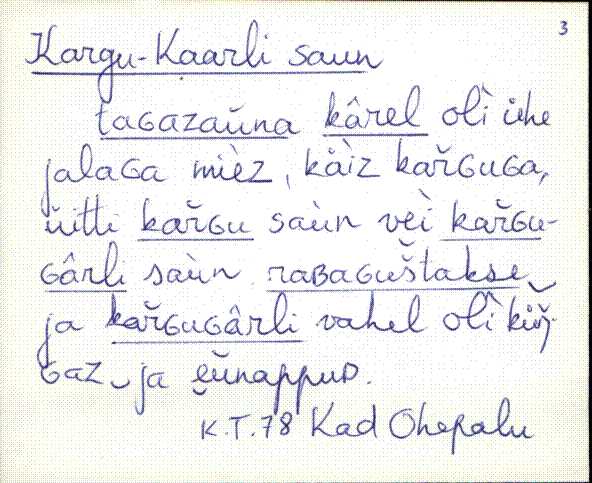 3
Kargu-Kaarli saun
taGazaŭna kârel olì ùhe
jalaGa mièz, kàìz kař̌GuGa,
ǜitti kař̌Gu saùn veì kař̌Gu-
Gârli saùn raBaGuštakse
ja kař̌GuGârli vahel olì
Gaz ja ě̮ŭnappuD.
K.T.78 Kad Ohepalu